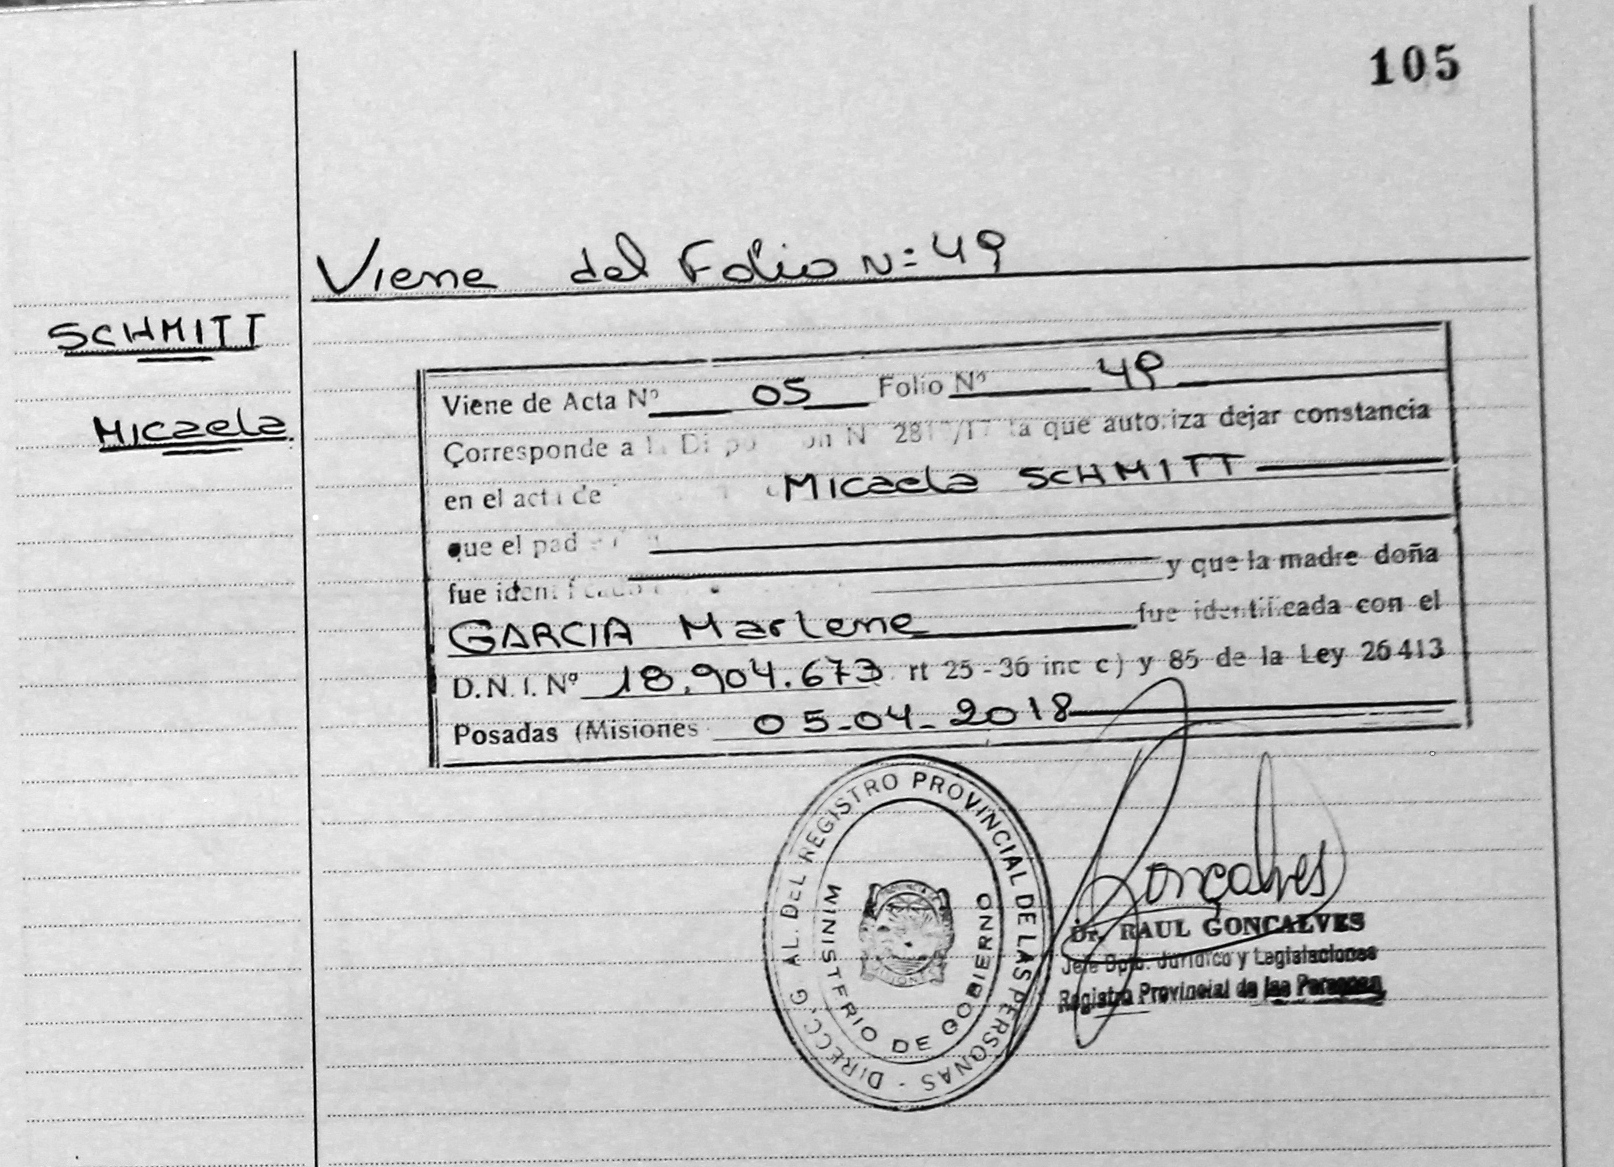 105
Viene del Folio N: 49
SCHMITT
Micaela
Viene de Acta Nº 05 Folio Nº 49
Corresponde a la que autoriza dejar constancia
en el acta de Micaela SCHMITT
que el
fue y que la madre doña
GARCIA Marlene fue identificada con el
D.N.I. Nº 18.904.673 rt 25-36 inc c) y 85 de la Ley 26413
Posadas (Misiones 05-04-2018
DIRECC. G AL. DEL REGISTRO PROVINCIAL DE LAS PERSONAS -
MINISTERIO DE GOBIERNO
Gonçalves
Dr. RAUL GONCALVES
Jefe Dpto. Jurídico y Legislaciones
Registro Provincial de las Personas